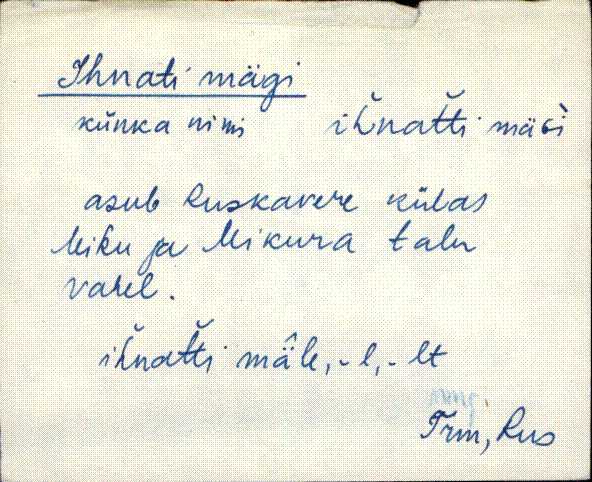 Ihnati mägi
künka nimi ih̆nat̆ti mäGì
asub Ruskavere külas
Miku ja Mikura talu
vahel.
ih̆nat̆ti mäle, -l, -lt
Trm, Rus